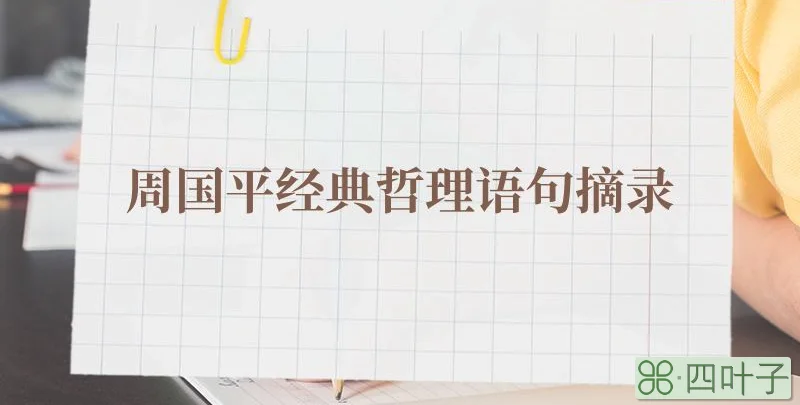 周国平经典哲理语句摘录
⌘·四叶子